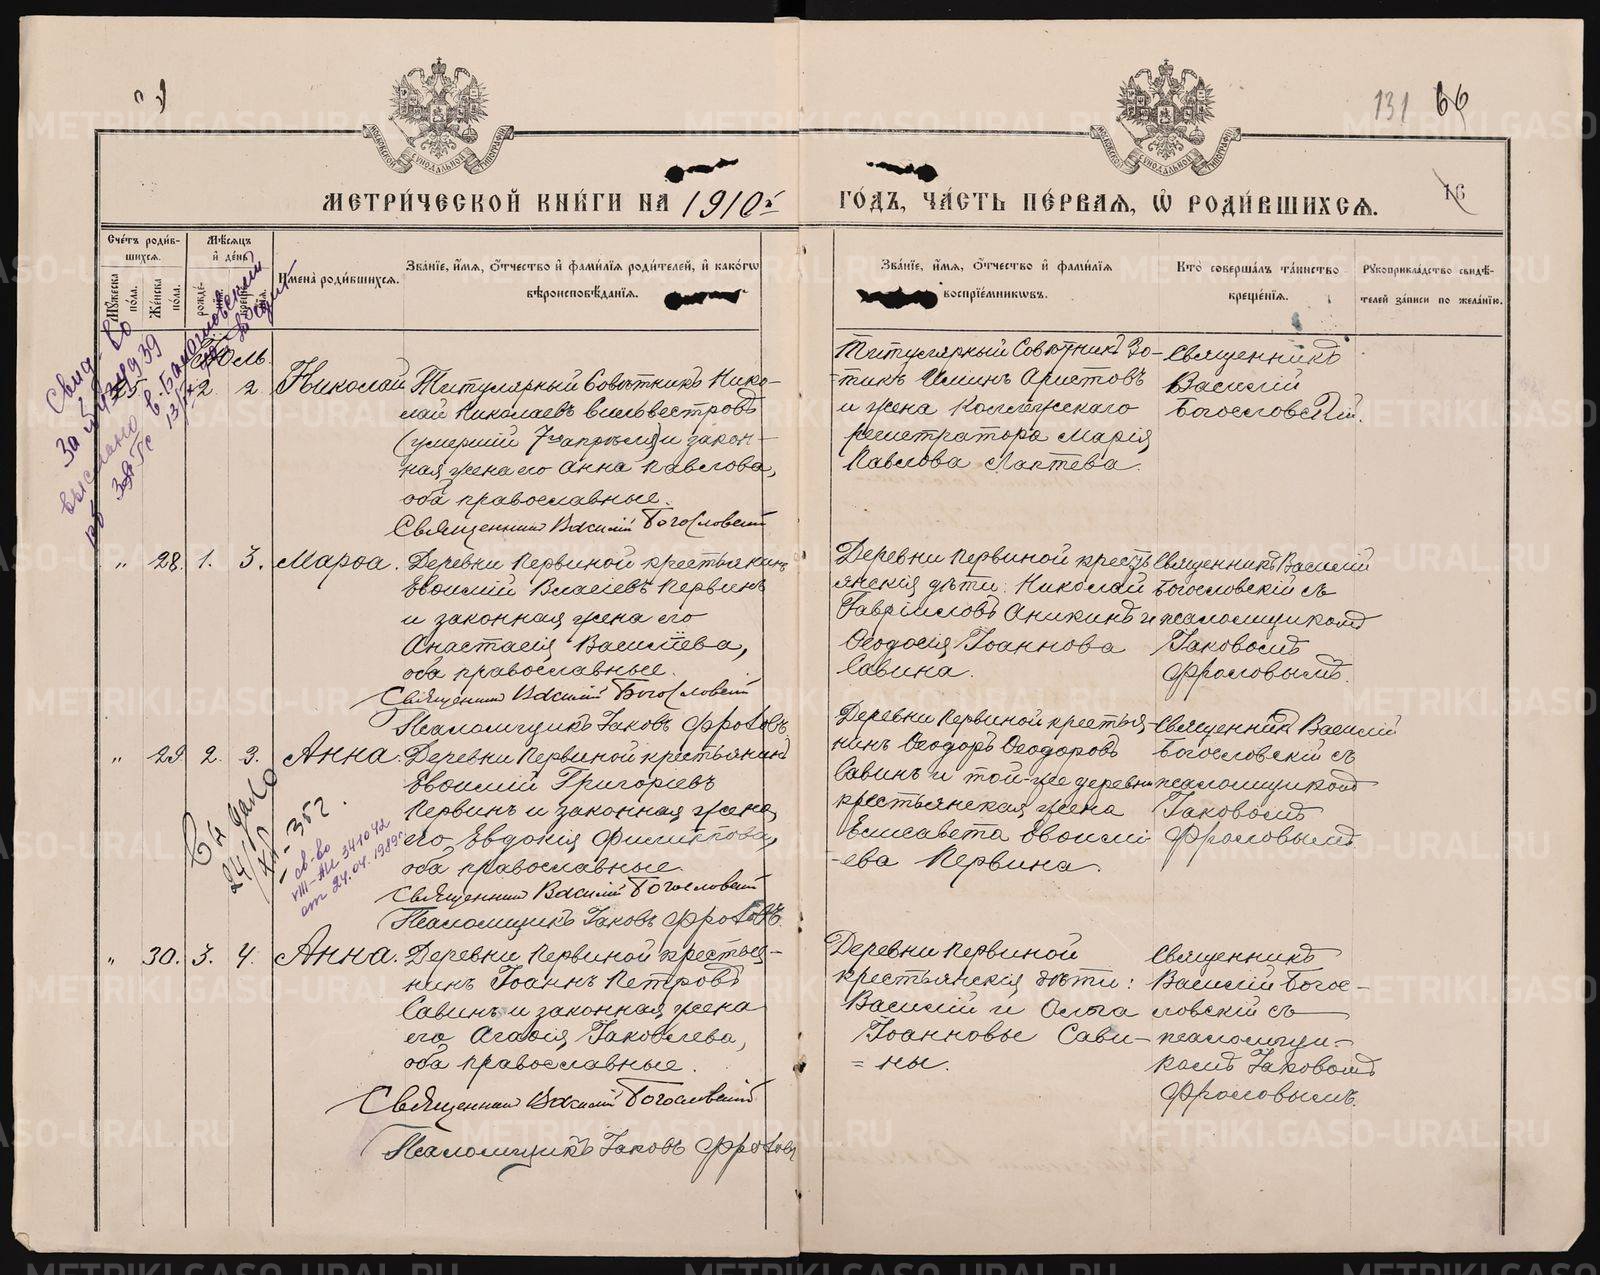 131 66
МОСКОВСКОЙ СѴНОДАЛЬНОЙ ТИПОГРАФІИ
МОСКОВСКОЙ СѴНОДАЛЬНОЙ ТИПОГРАФІИ
МЕТРИ́ЧЕСКОЙ КНИ́ГИ НА 1910й
ГО́ДЪ, ЧА́СТЬ ПЕ́РВАѦ, Ѡ҆ РОДИ́ВШИХСѦ.
16
Сче́тъ роди́в-
шихсѧ.
Мꙋ́жеска по́ла.
Же́нска по́ла.
Мѣ́сѧцъ
и҆ де́нь
рожде́-
нїѧ.
И҆мена̀ роди́вшихсѧ.
Зва́нїе, и҆́мѧ, ѻ҆́тчество и҆ фами́лїѧ роди́телей, и҆ како́гѡ
вѣроисповѣ́данїѧ.
Зва́нїе, и҆́мѧ, ѻ҆́тчество и҆ фами́лїѧ
воспрїе́мникѡвъ.
Кто̀ соверша́лъ та́инство
креще́нїѧ.
Рꙋкоприкла́дство свидѣ́-
телей за́писи по жела́нїю.
Свид-во
выслано
Іюль.
25 2 2 Николай
Титулярный Совѣтникъ Нико-
лай Николаевъ Сильвестровъ
(умершій 7го апрѣля) и закон-
ная жена его Анна Павлова,
оба православные.
Священникъ Василій Богословскій
Титулярный Совѣтникъ Зо-
тикъ Иминъ Аристовъ
и жена Коллежскаго
регистратора Марія
Павлова Лаптева.
Священникъ
Василій
Богословскій.
„ 28. 1. 3. Марѳа.
Деревни Первиной крестьянинъ
Евѳимій Власіевъ Первинъ
и законная жена его
Анастасія Васильева,
оба православные.
Священникъ Василій Богословскій
Псаломщикъ Іаковъ Фроловъ
Деревни Первиной кресть-
янскія дѣти: Николай
Гавріиловъ Аникинъ и
Ѳеодосія Іоаннова
Савина.
Священникъ Василій
Богословскій съ
псаломщикомъ
Іаковомъ
Фроловымъ.
„ 29 2. 3. Анна.
Деревни Первиной крестьянинъ
Евѳимій Григоріевъ
Первинъ и законная жена
его Евдокія Филиппова,
оба православные.
Священникъ Василій Богословскій
Псаломщикъ Іаковъ Фроловъ.
Деревни Первиной крестья-
нинъ Ѳеодоръ Ѳеодоровъ
Савинъ и той-же деревни
крестьянская жена
Елисавета Евѳимі-
ева Первина.
Священникъ Василій
Богословскій съ
псаломщикомъ
Іаковомъ
Фроловымъ
св-во
VIII-АИ 341042
от 24.04.1989г.
„ 30. 3. 4. Анна.
Деревни Первиной крестья-
нинъ Іоаннъ Петровъ
Савинъ и законная жена
его Агаѳія Іаковлева,
оба православные.
Священникъ Василій Богословскій
Псаломщикъ Іаковъ Фроловъ
Деревни Первиной
крестьянскія дѣти:
Василій и Ольга
Іоанновы Сави-
=ны.
Священникъ
Василій Богос-
ловскій съ
псаломщи-
комъ Іаковомъ
Фроловымъ.
METRIKI.GASO-URAL.RU